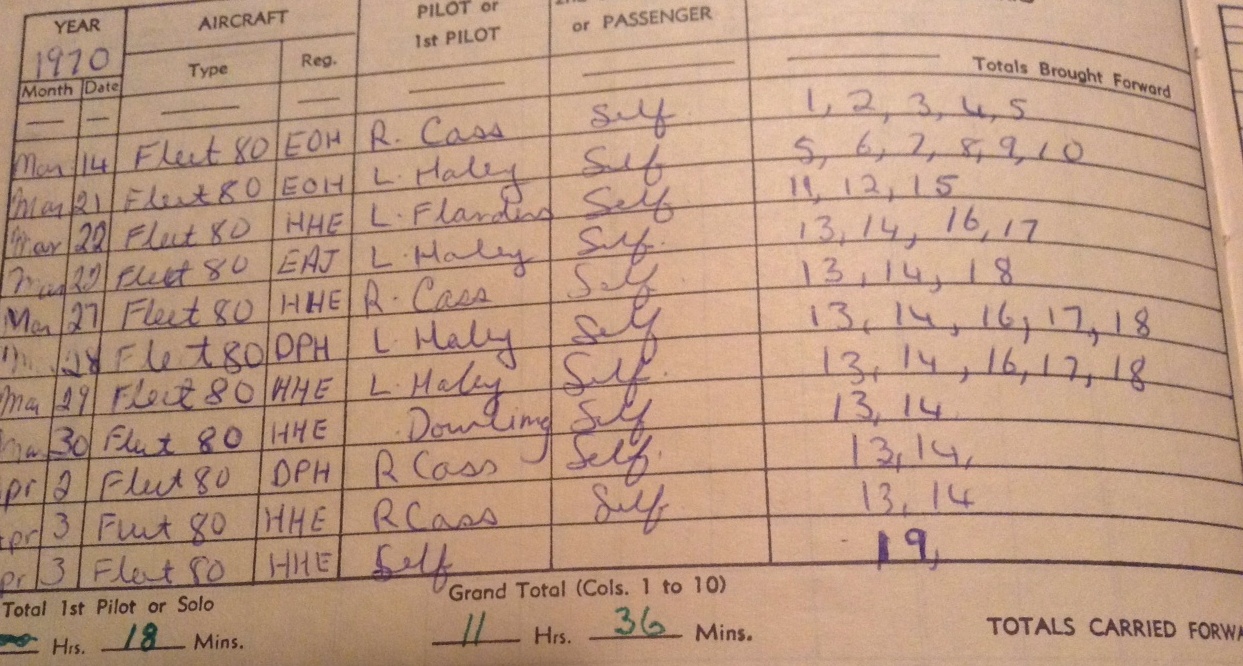 YEAR AIRCRAFT PILOT or 1st PILOT or PASSENGER
1970 Type Reg.
Month Date Totals Brought Forward
Mar 14 Fleet 80 EOH R. Cass Self 1, 2, 3, 4, 5
Mar 21 Fleet 80 EOH L. Haley Self 5, 6, 7, 8, 9, 10
Mar 22 Fleet 80 HHE L. Flanders Self 11, 12, 15
22 Fleet 80 EAJ L. Haley Self. 13, 14, 16, 17
Mar 27 Fleet 80 HHE R. Cass Self 13, 14, 18
28 Fleet 80 DPH L. Haley Self 13, 14, 16, 17, 18
Mar 29 Fleet 80 HHE L. Haley Self. 13, 14, 16, 17, 18
30 Fleet 80 HHE Dowling Self 13, 14
pr 2 Fleet 80 DPH R Cass Self. 13, 14,
pr 3 Fleet 80 HHE R Cass Self 13, 14
pr 3 Fleet 80 HHE Self 19,
Total 1st Pilot or Solo Grand Total (Cols. 1 to 10)
Hrs. 18 Mins. 11 Hrs. 36 Mins. TOTALS CARRIED FORWA